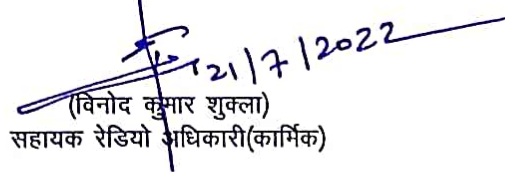 21/7/2022
(विनोद कुमार शुक्ला)
सहायक रेडियो अधिकारी(कार्मिक)